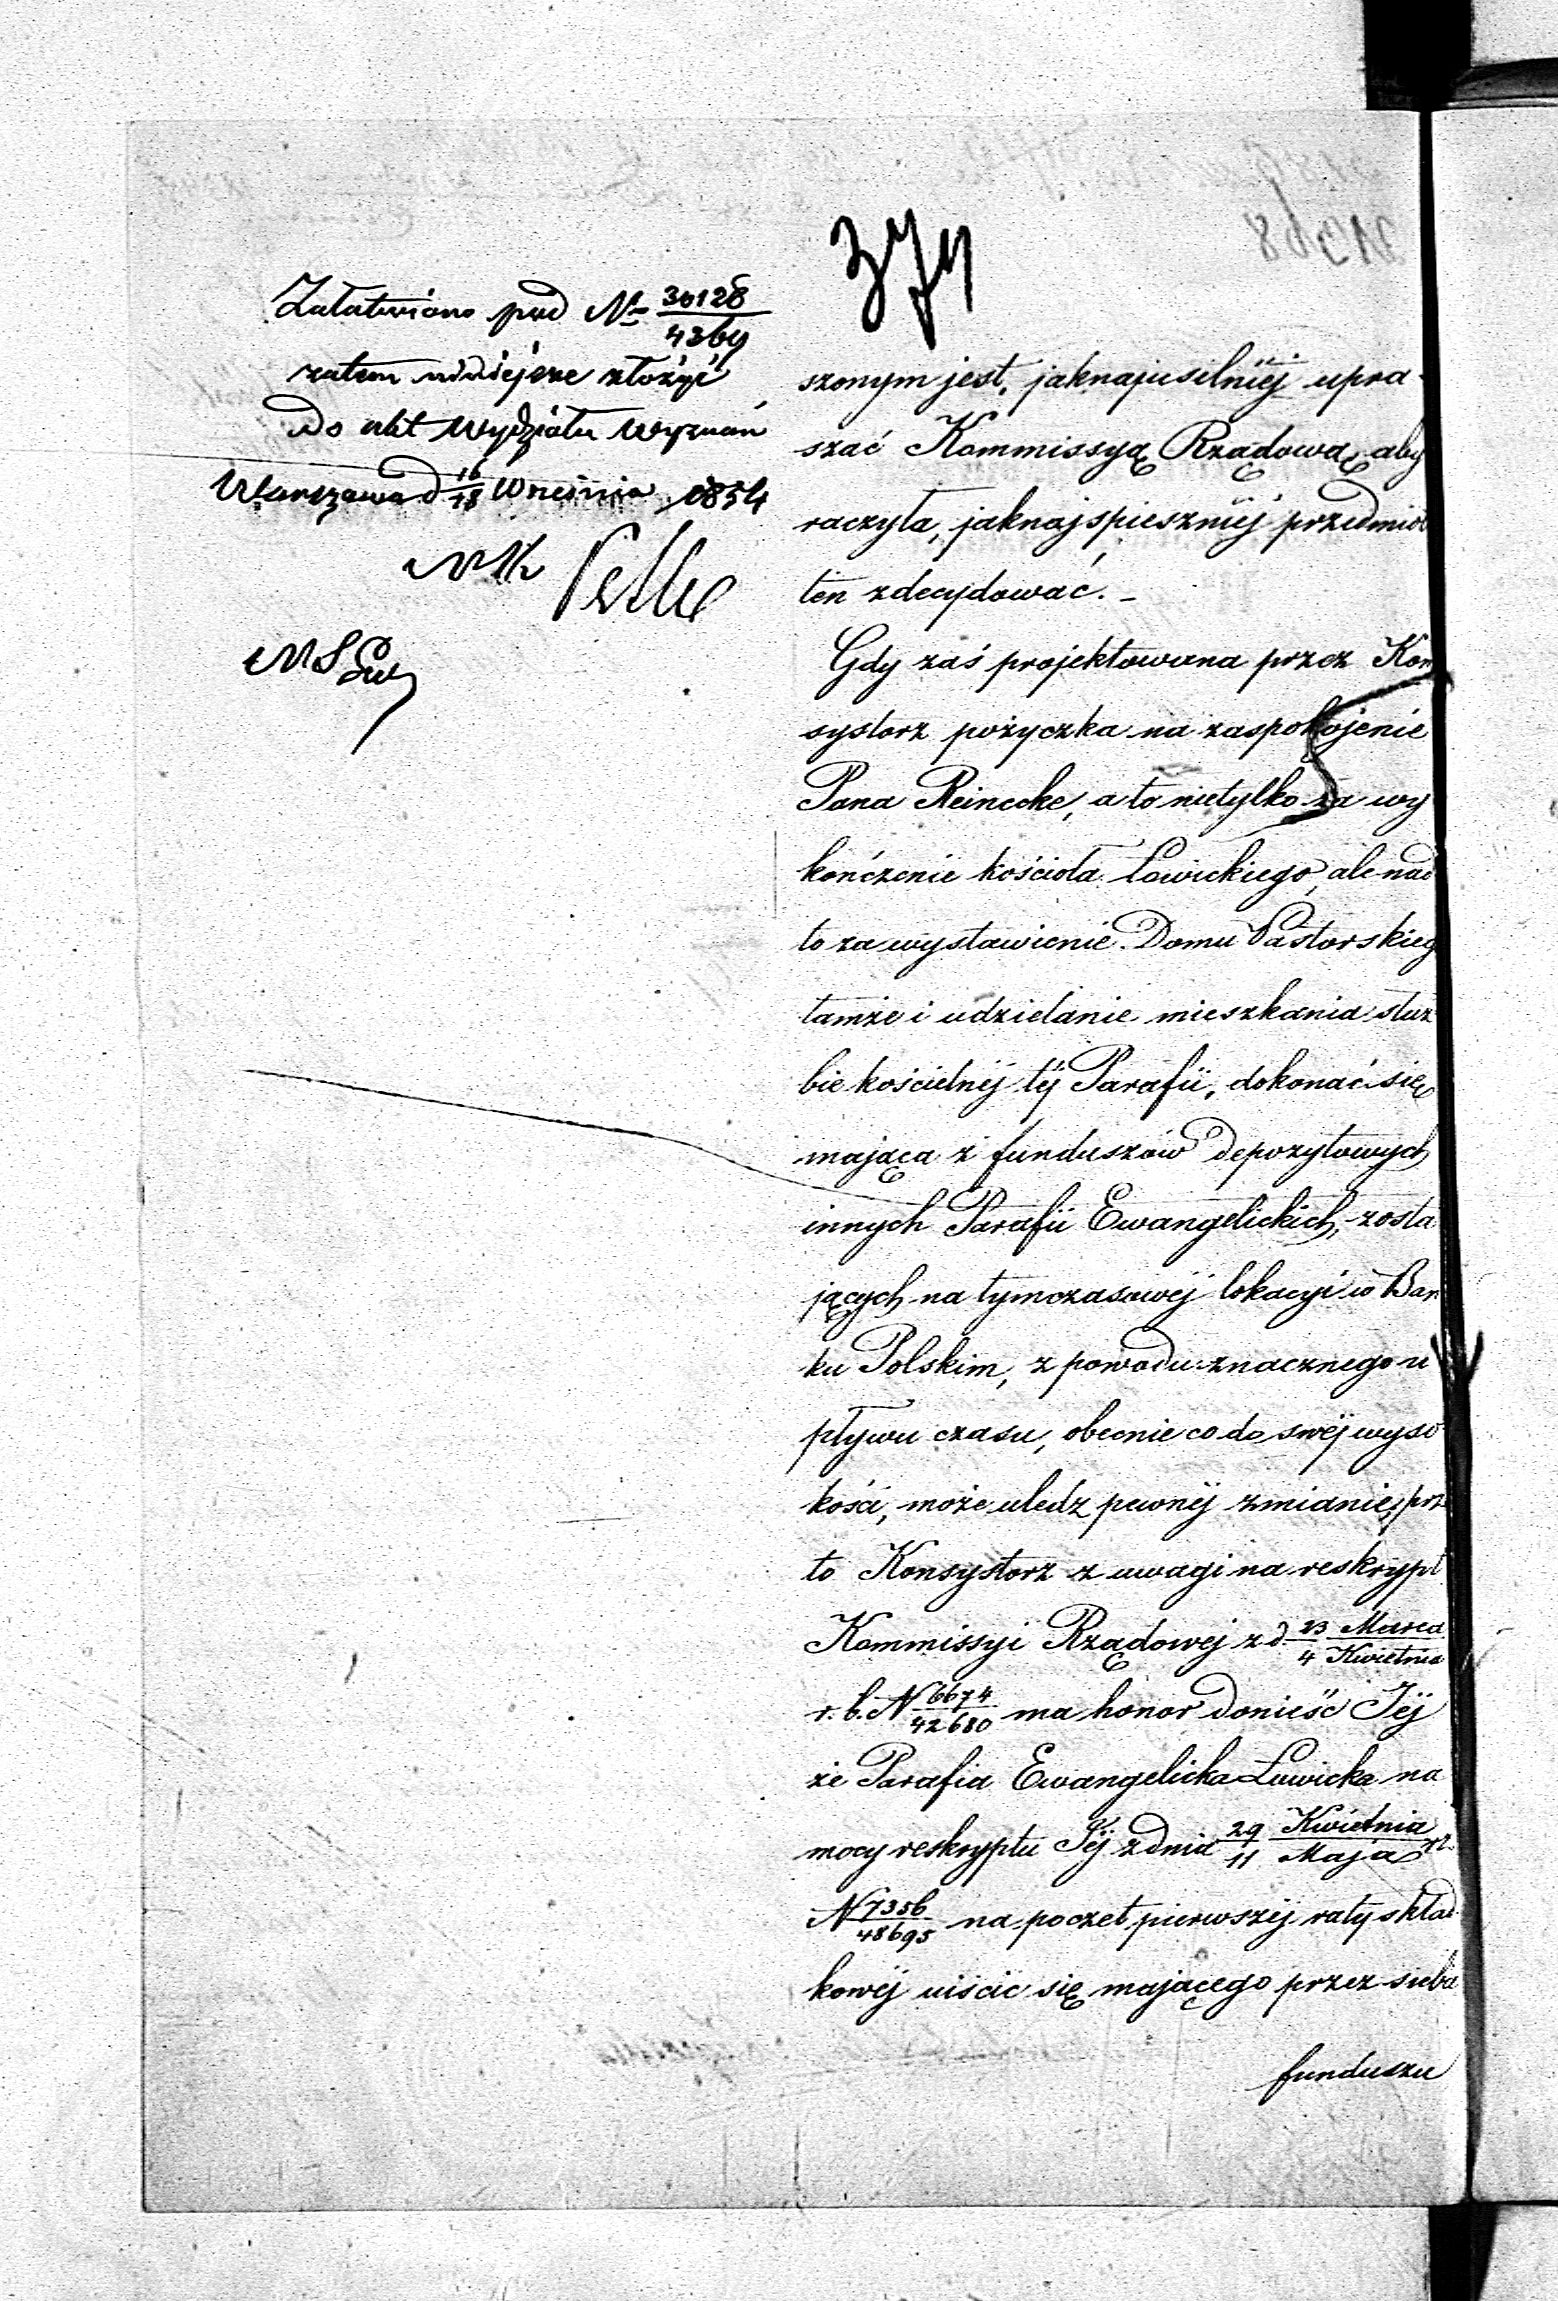 Załatwiono pod № 30128/4369
zatem niniejsze złożyć
do akt Wydziału Wyznań
Warszawa d 16/18 Września 1854
szonym jest, jaknajusilniéj upra-
szać Kommissyą Rządową, aby
raczyła, jaknajspieszniéj przedmiot
ten zdecydować. –
Gdy zaś projektowana przez Kon
systorz pożyczka na zaspokojenie
Pana Reinecke, a to nietylko za wy
kończenie kościoła Łowickiego, ale nad
to za wystawienie Domu Pastorskieg
tamże i udzielanie mieszkania służ
bie kościelnéj téj Parafii, dokonać się
mająca z funduszów depozytowych
innych Parafii Ewangelickich, zosta
jących na tymczasowéj lokacyi w Ban
ku Polskim, z powodu znacznego u
pływu czasu, obecnie co do swéj wyso
kości, może uledz pewnéj zmianie, prze
to Konsystorz z uwagi na reskrypt
Kommissyi Rządowej z d 23 Marca/4 Kwietnia
r. b. N 6674/42680 ma honor donieść Jéj
że Parafia Ewangelicka Łowicka na
mocy reskryptu Jéj z dnia 29 Kwietnia/11 Maja
N 7356/48695 na poczet pierwszéj raty skład
kowéj uiścić się mającego przez siebie
funduszu